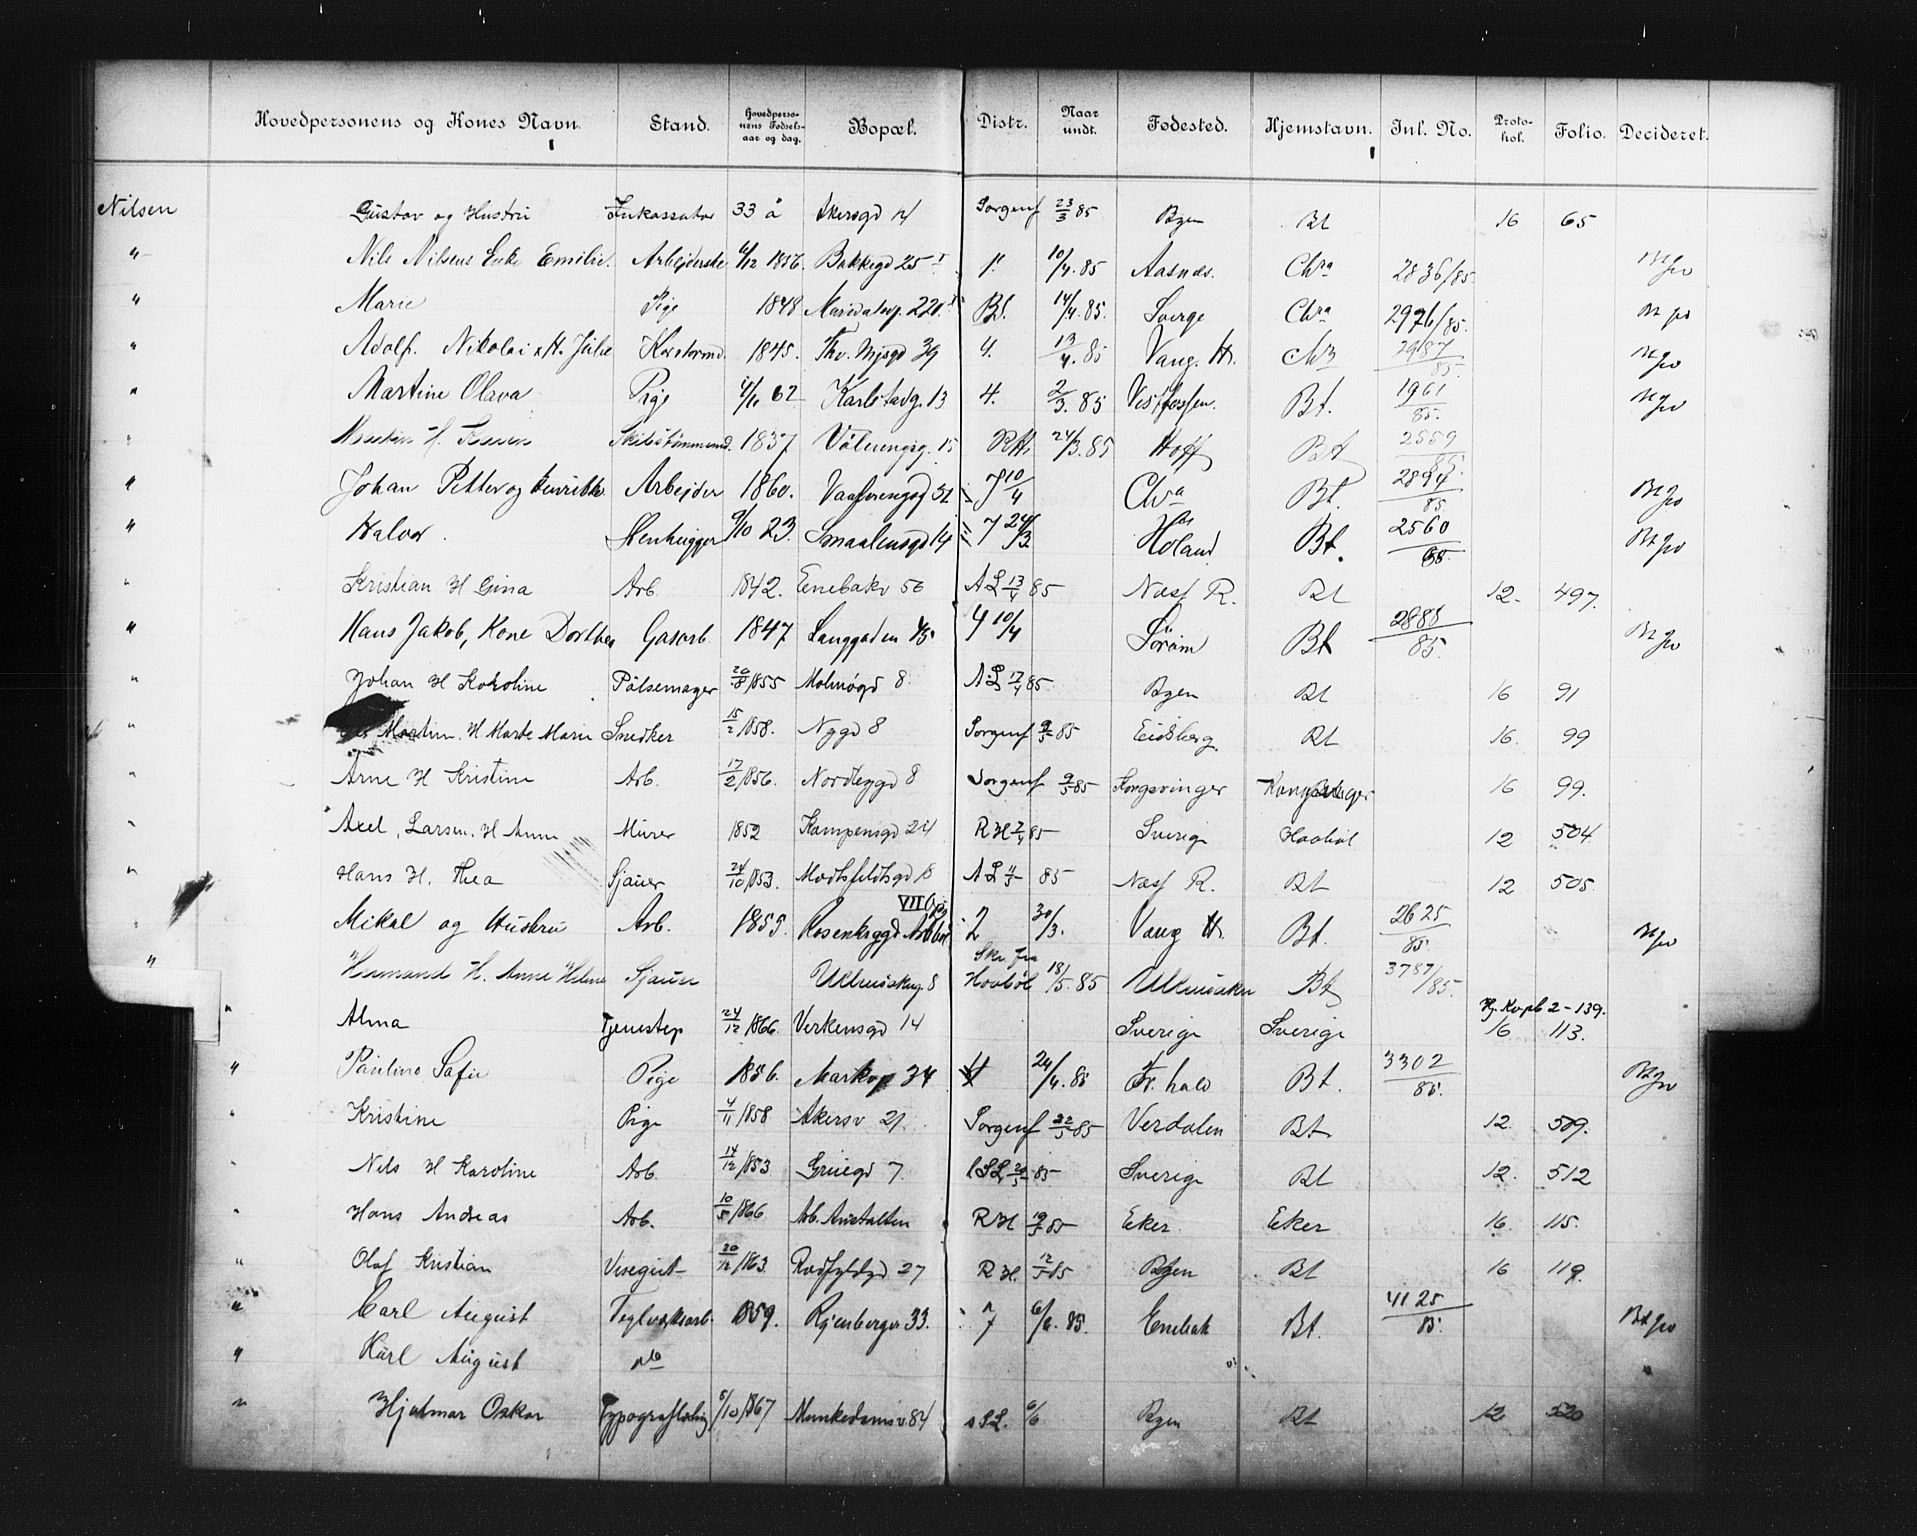 Hovedpersonens og Kones Navn. Stand. Hovedpersonens Fødselsaar og dag. Bopæl. Distr. Naar undt. Fødested. Hjemstavn. Inl. No. Protokol. Folio. Decideret.
Nilsen Gustav og Hustru Inkassator 33 å Akersgd 14 Sorgenf 23/3 85 Byen Bt 16 65
" Nils Nilsens Enke Emilie. Arbejderske 6/12 1856. Bakkegd 25 1. 10/4. 85 Aasnes. Chra 2836/85.
" Marie Pige 1848 Maridalsv. 220. Bt. 14/4. 85. Sverge Chra 2976/85.
" Adolf. Nikolai & H. Julie 1845. Thv. Mejsgd 39 4. 13/4. 85 Vang. H. 2987/85.
" Martine Olava Pige 4/11 62 Karlstadg. 13 4. 2/3. 85 Vestfossen. Bt. 1961/85.
1837 Vålerengsg. 15 RH. 24/3. 85 Hoff Bt 2559/85.
" Johan Petter og Henrikke Arbejder 1860. Vaalerengsgd 51 7 10/4 Chra Bt. 2894/85
" Halvor. Stenhugger 9/10 23. Smaalensgd 14 7 24/3 Høland Bt. 2560/85.
" Kristian H Gina Arb. 1842. Enebakv 56 A L 13/4 85 Næss R. Bt 12. 497.
" Hans Jakob, Kone Dorthea Gasarb. 1847 Langgaden 45 4 10/4 Sørum Bt 2888/85.
" Johan H Karoline Pølsemager 20/8 1855 Malmøgd 8 A. L 17/4 85. Byen Bt 16 91
" Martin. H Marte Marie Snedker 15/2 1858. Nygd 8 Sorgenf 9/5 85 Eidsberg Bt 16. 99
" Arne H Kristine Arb. 17/2 1856. Nordbygd 8 Sorgenf 9/5 85 Kongsvinger Kongsvinger 16 99.
" Axel, Larsen. H Anne Murer 1852 Kampensgd 24 R H 7/4 85 Sverige Haabøl 12 504.
" Hans H. Thea Sjauer 24/10 1853. Motzfeldtsgd 18 A L 11/5 85 Næss R. Bt 12 505.
" Mikal og Hustru Arb. 1855. Rosenkrgd VII 2 30/3. Vang H. Bt. 2625/85.
" H. Anne Helene Sjauer Ullensakerg. 8 Skr. fra Hovbøl 18/5. 85 Ullensaker Bt 3787/85.
" Alma Tjenestep 24/12 1866. Verkensgd 14 Sverige Sverige Hj. Kopb 2-139. 16 113.
" Pauline Sofie Pige 1856. Markv 34 24/4. 85 Fr. hald Bt. 3302/85.
" Kristine Pige 4/11 1858 Akersv 21 Sorgenf 22/5 85 Verdalen Bt 12. 509.
" Nils H Karoline Arb. 14/12 1853 Gruegd 7. L S L 20/5 85 Sverige Bt 12. 512
" Hans Andreas Arb. 10/5 1866. Arb. Anstalten R H 19/5 85 Eker. Eker 16. 115.
" Olaf Kristian Visergut 20/12 1863. Rodfyldgd 27 R H. 12/5 85 Byen Bt 16 119.
" Carl August Teglværksarb. 1859. Ryenbergv 33. 7 6/6. 85. Enebak Bt. 4125/85.
" Karl August
" Hjalmar Oskar Typograflærling 5/10 1867 Munkedamsv 84 s S L. 6/6 Byen Bt 12 520